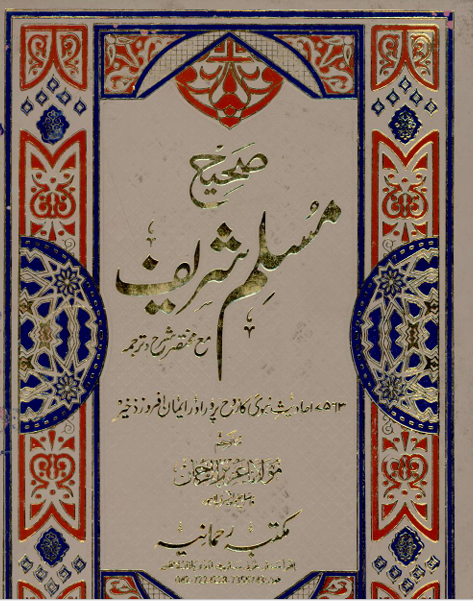 صحیح
مسلم شریف
مع مختصر شرح و ترجمہ
۷۵۶۳ احادیث نبوی کا روح پرور اور ایمان افروز ذخیرہ
مولانا عزیز الرحمٰن
مکتبہ رحمانیہ